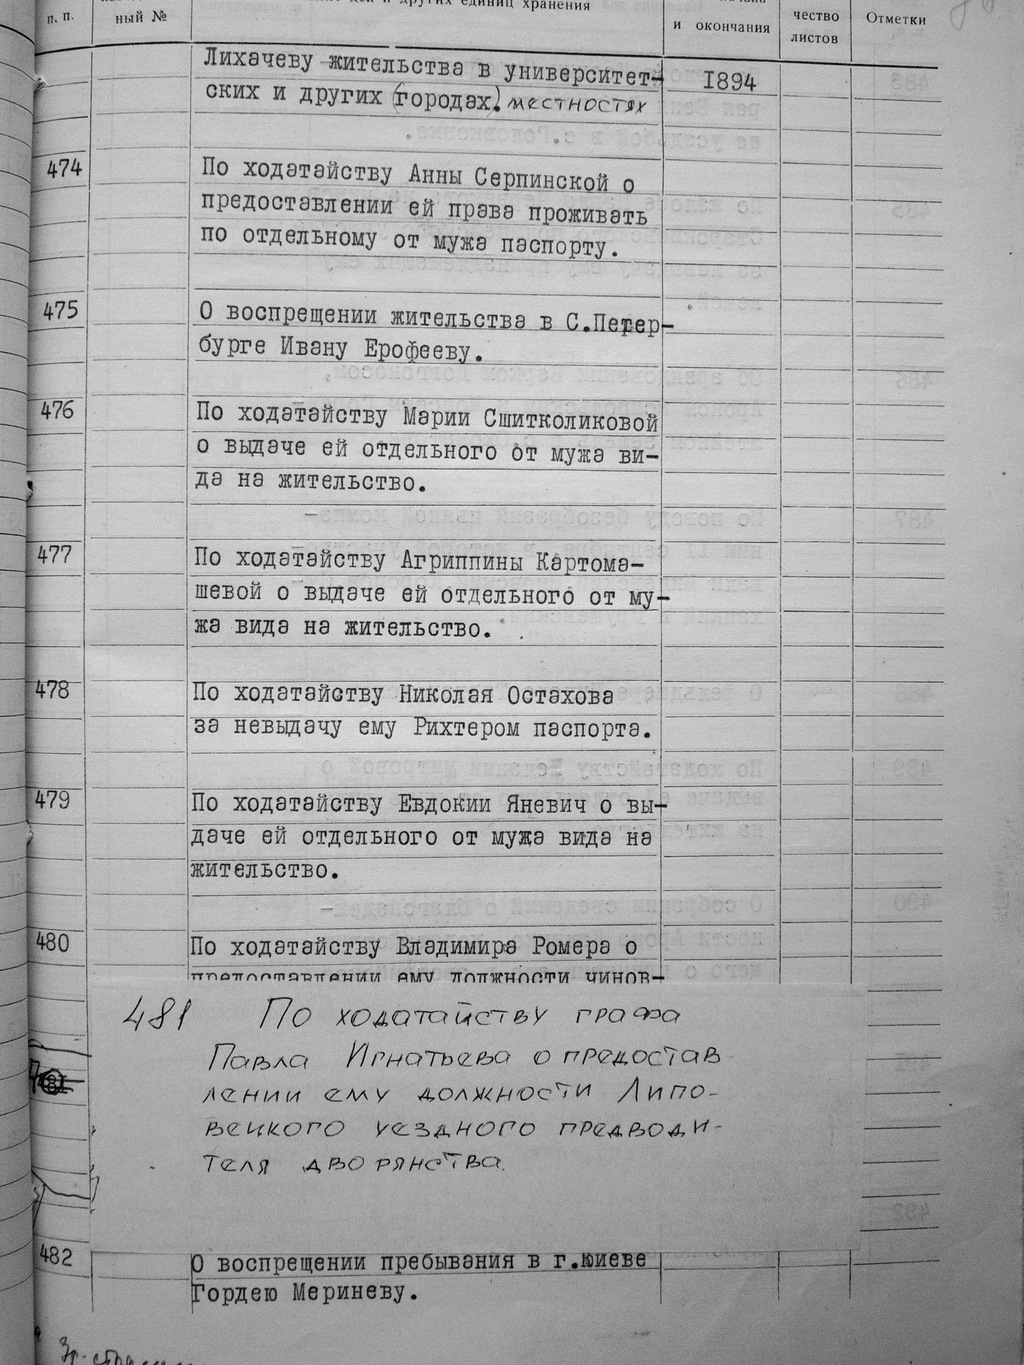 п. п.
ный №
дел и других единиц хранения
и окончания
чество
листов
Отметки
Лихачеву жительства в университет-
ских и других (городах). местностях
1894
474
По ходатайству Анны Серпинской о
предоставлении ей права проживать
по отдельному от мужа паспорту.
475
О воспрещении жительства в С.Петер-
бурге Ивану Ерофееву.
476
По ходатайству Марии Сшитколиковой
о выдаче ей отдельного от мужа ви-
да на жительство.
477
По ходатайству Агриппины Картома-
шевой о выдаче ей отдельного от му-
жа вида на жительство.
478
По ходатайству Николая Остахова
за невыдачу ему Рихтером паспорта.
479
По ходатайству Евдокии Яневич о вы-
даче ей отдельного от мужа вида на
жительство.
480
По ходатайству Владимира Ромера о
предоставлении ему должности чинов-
481 По ходатайству графа
Павла Игнатьева о предостав
лении ему должности Липо-
вецкого уездного предводи-
теля дворянства.
482
О воспрещении пребывания в г.Киеве
Гордею Мериневу.